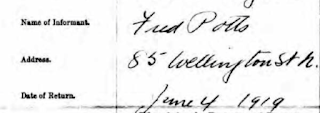 Name of Informant. Fred Potts
Address. 85 Wellington St N.
Date of Return. June 4 1919